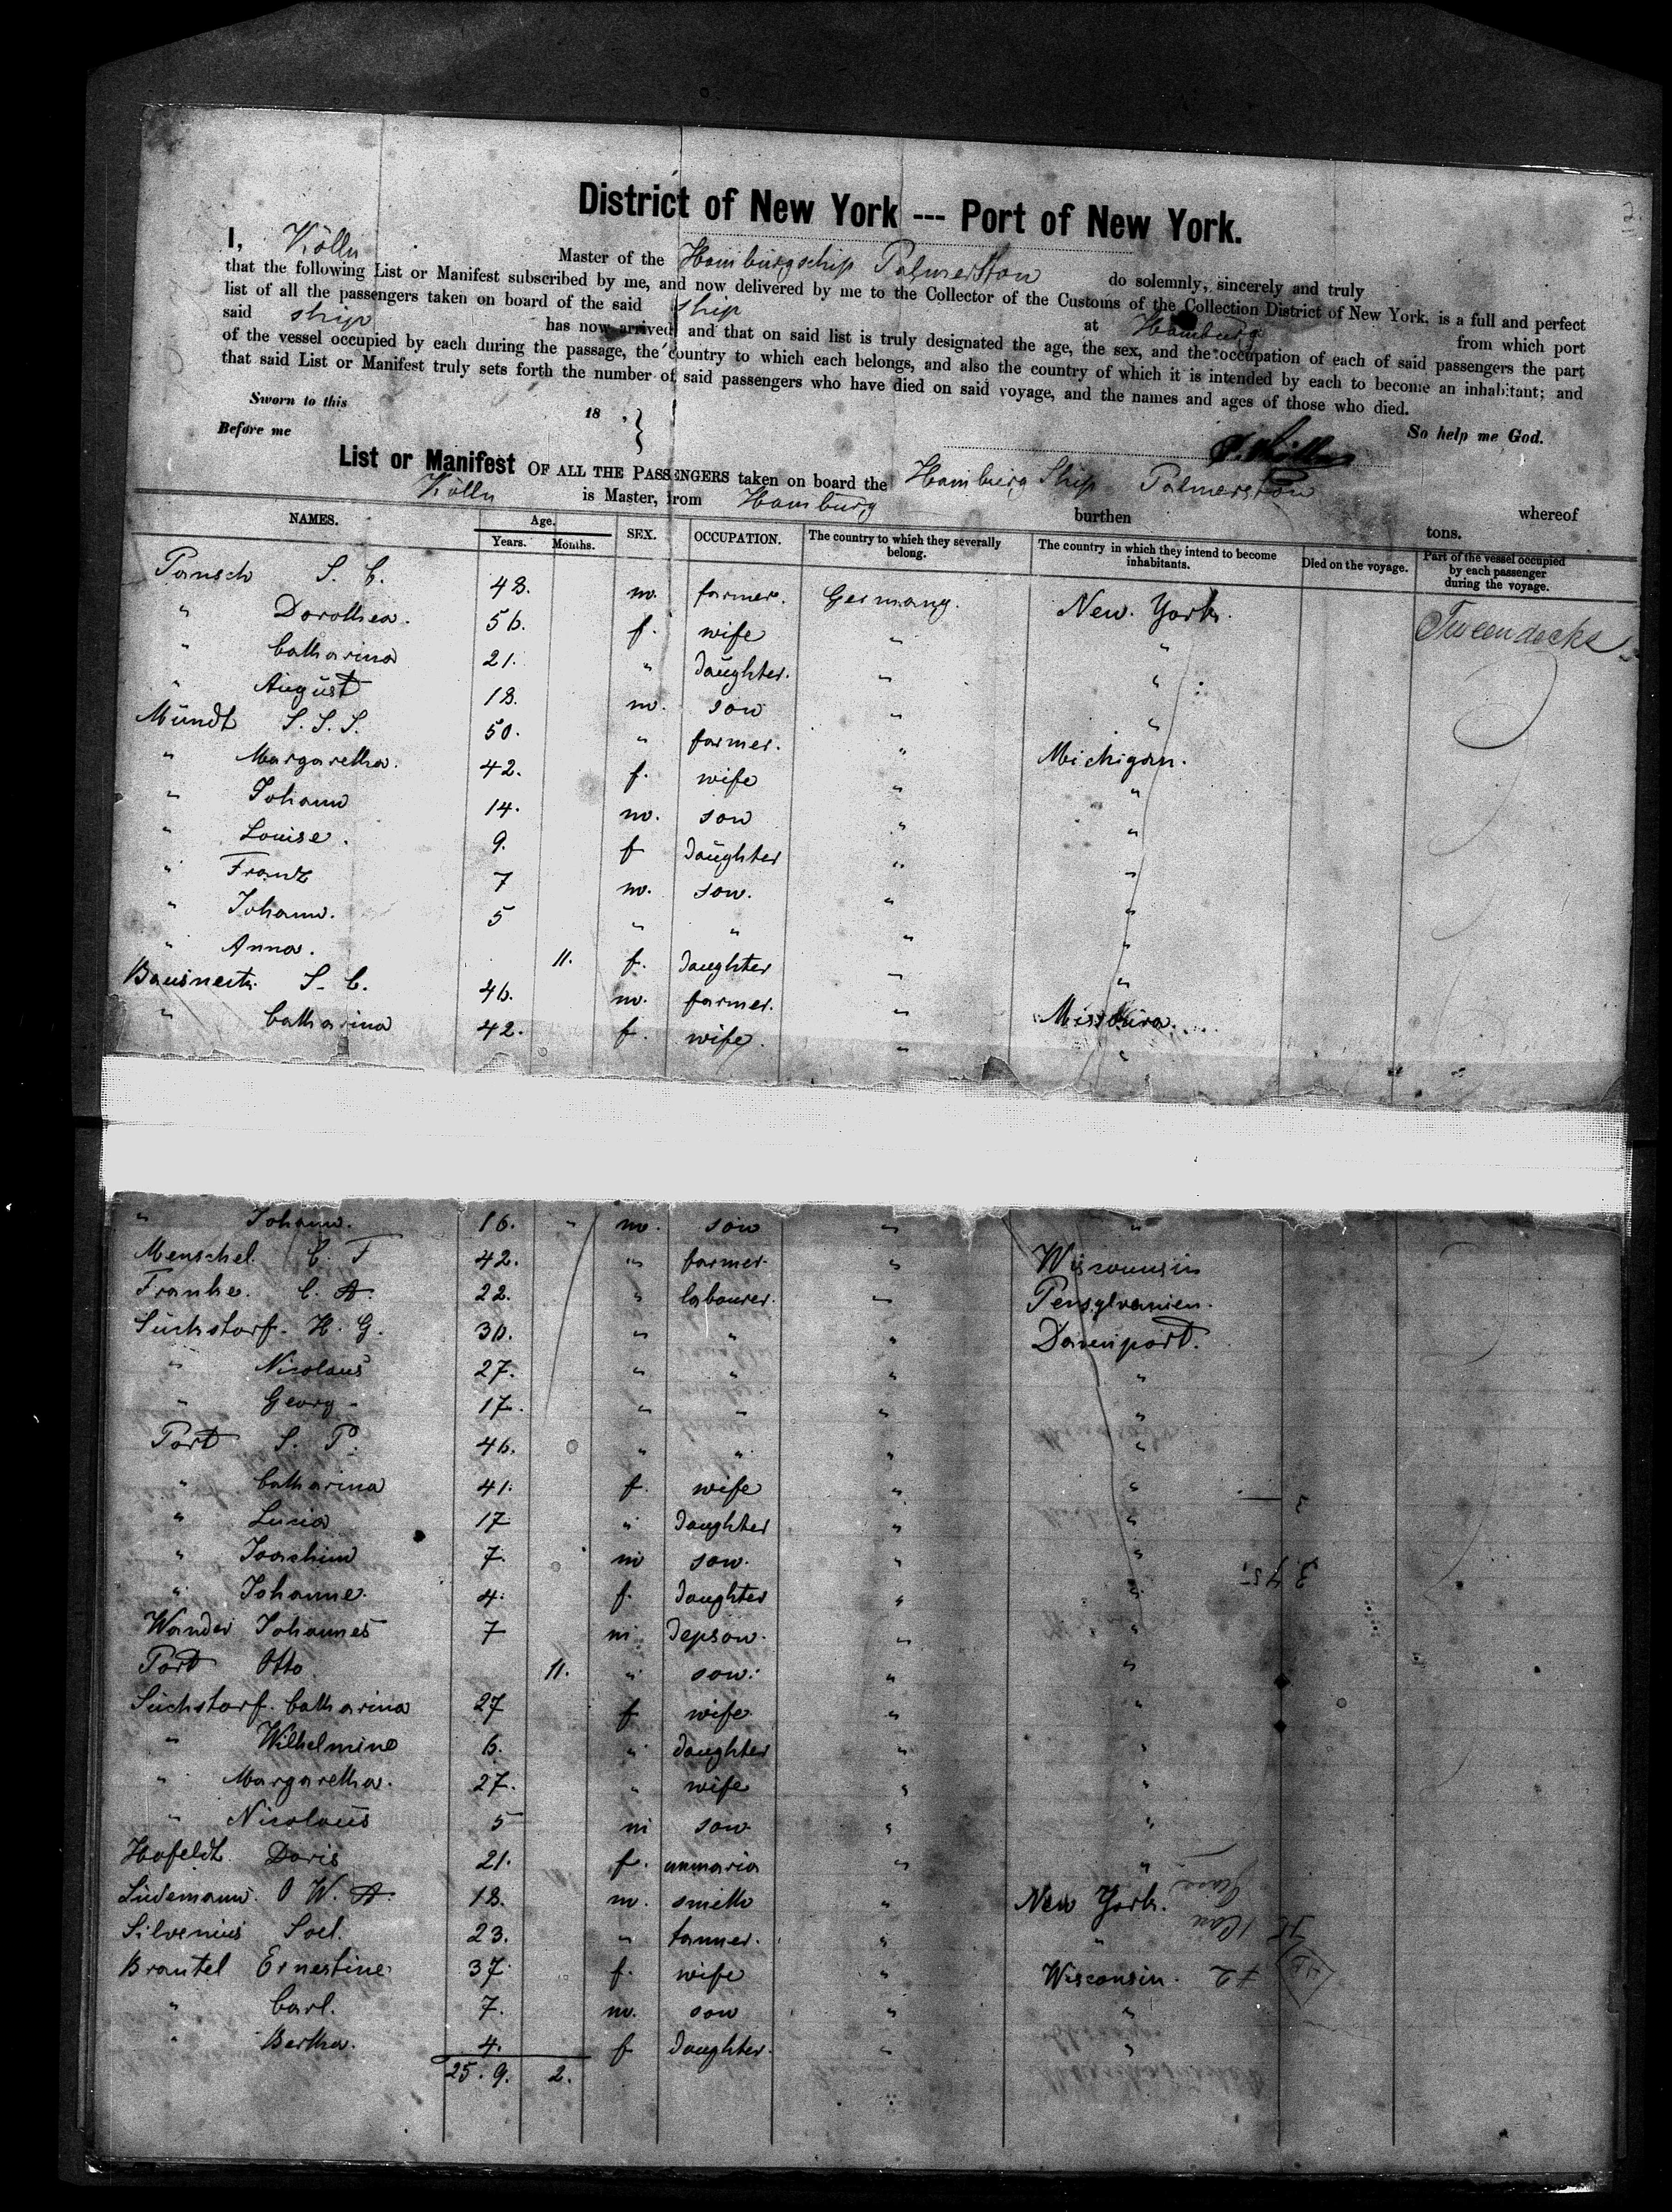 District of New York --- Port of New York.
I, Kölln Master of the Hamburgship Palmerston do solemnly, sincerely and truly
that the following List or Manifest subscribed by me, and now delivered by me to the Collector of the Customs of the Collection District of New York, is a full and perfect
list of all the passengers taken on board of the said ship at Hamburg from which port
said ship has now arrived; and that on said list is truly designated the age, the sex, and the occupation of each of said passengers the part
of the vessel occupied by each during the passage, the country to which each belongs, and also the country of which it is intended by each to become an inhabitant; and
that said List or Manifest truly sets forth the number of said passengers who have died on said voyage, and the names and ages of those who died.
Sworn to this 18 , So help me God.
Before me
List or Manifest OF ALL THE PASSENGERS taken on board the Hamburg Ship Palmerston whereof
Kölln is Master, from Hamburg burthen tons.
NAMES. Age. Years. Months. SEX. OCCUPATION. The country to which they severally belong. The country in which they intend to become inhabitants. Died on the voyage. Part of the vessel occupied by each passenger during the voyage.
Pansch J. C. 48. m. farmer. Germany. New. York. Tweendecks
" Dorothea. 56. f. wife " "
" Catharina 21. " daughter. " "
" August 18. m. son " "
Mündt J. J. J. 50. " farmer. " Michigan.
" Margaretha. 42. f. wife " "
" Johann 14. m. son " "
" Louise. 9. f daughter " "
" Franz 7 m. son. " "
" Johann. 5 " " " "
" Anna. 11. f. daughter " "
J. C. 46. m. farmer. "
" Catharina 42. f. wife. " "
" Johann. 16. " m. son " "
Menschel. C. F 42. " farmer. " Wisconnsin
Franke. C. A. 22. " labourer. " Pensylvanien.
Süchstorf. H. G. 30. " " " Davenport.
" Nicolaus 27. " " " "
" Georg 17. " " " "
Port J. P. 46. " " " "
" Catharina 41. f. wife " "
" Lucia 17 " daughter " "
" Joachim 7. m son. " "
" Johanne. 4. f. daughter " "
Wander Johannes 7 m depson. " "
Port Otto 11. " son. " "
Süchstorf. Catharina 27 f wife " "
" Wilhelmine 6. " daughter " "
" Margaretha. 27. " wife " "
" Nicolaus 5 m son " "
Hofeldt. Doris 21. f. unmaria " "
Lüdemann. O W. A. 18. m. smith " New York.
Silvenius Joel. 23. " tanner. " "
Brautel Ernestine 37. f. wife " Wisconsin.
" Carl. 7. m. son " "
" Bertha. 4. f daughter. " "
25. 9. 2.